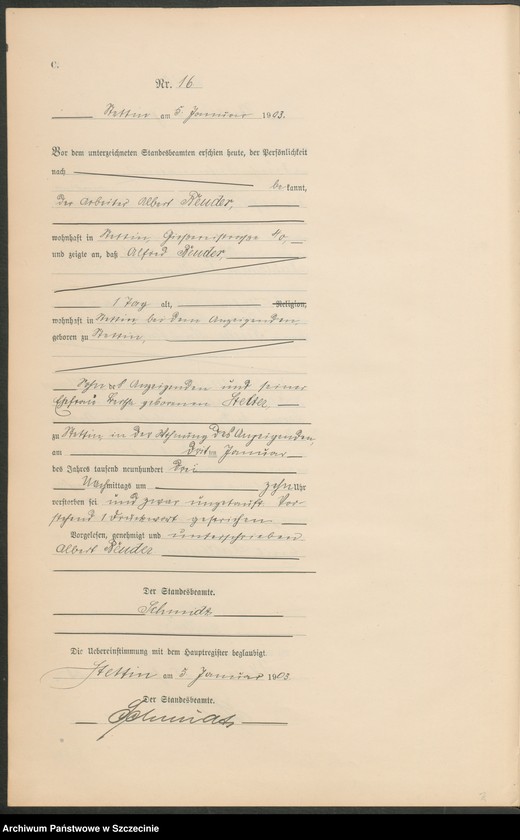 C.
Nr. 16
Stettin am 5 Januar 1903.
Vor dem unterzeichneten Standesbeamten erschien heute, der Persönlichkeit
nach
be kannt,
der Arbeiter Albert Reuder,
wohnhaft in Stettin, Gießereistrasse
und zeigte an, daß Alfred Reuder,
1 Tag alt, Religion,
wohnhaft in Stettin bei dem Anzeigenden,
geboren zu Stettin,
Sohn des Anzeigenden und seiner
Ehefrau geborenen Stelter,
zu Stettin in der Wohnung des Anzeigenden,
am dritten Januar
des Jahres tausend neunhundert drei
Nachmittags um zehn Uhr
verstorben sei und zwar ungetauft. Vor-
stehend 1 Druckwort gestrichen
Vorgelesen, genehmigt und unterschrieben
Albert Reuder
Der Standesbeamte.
Schmidt
Die Uebereinstimmung mit dem Hauptregister beglaubigt
Stettin am 5 Januar 1903.
Der Standesbeamte.
Schmidt
Archiwum Państwowe w Szczecinie